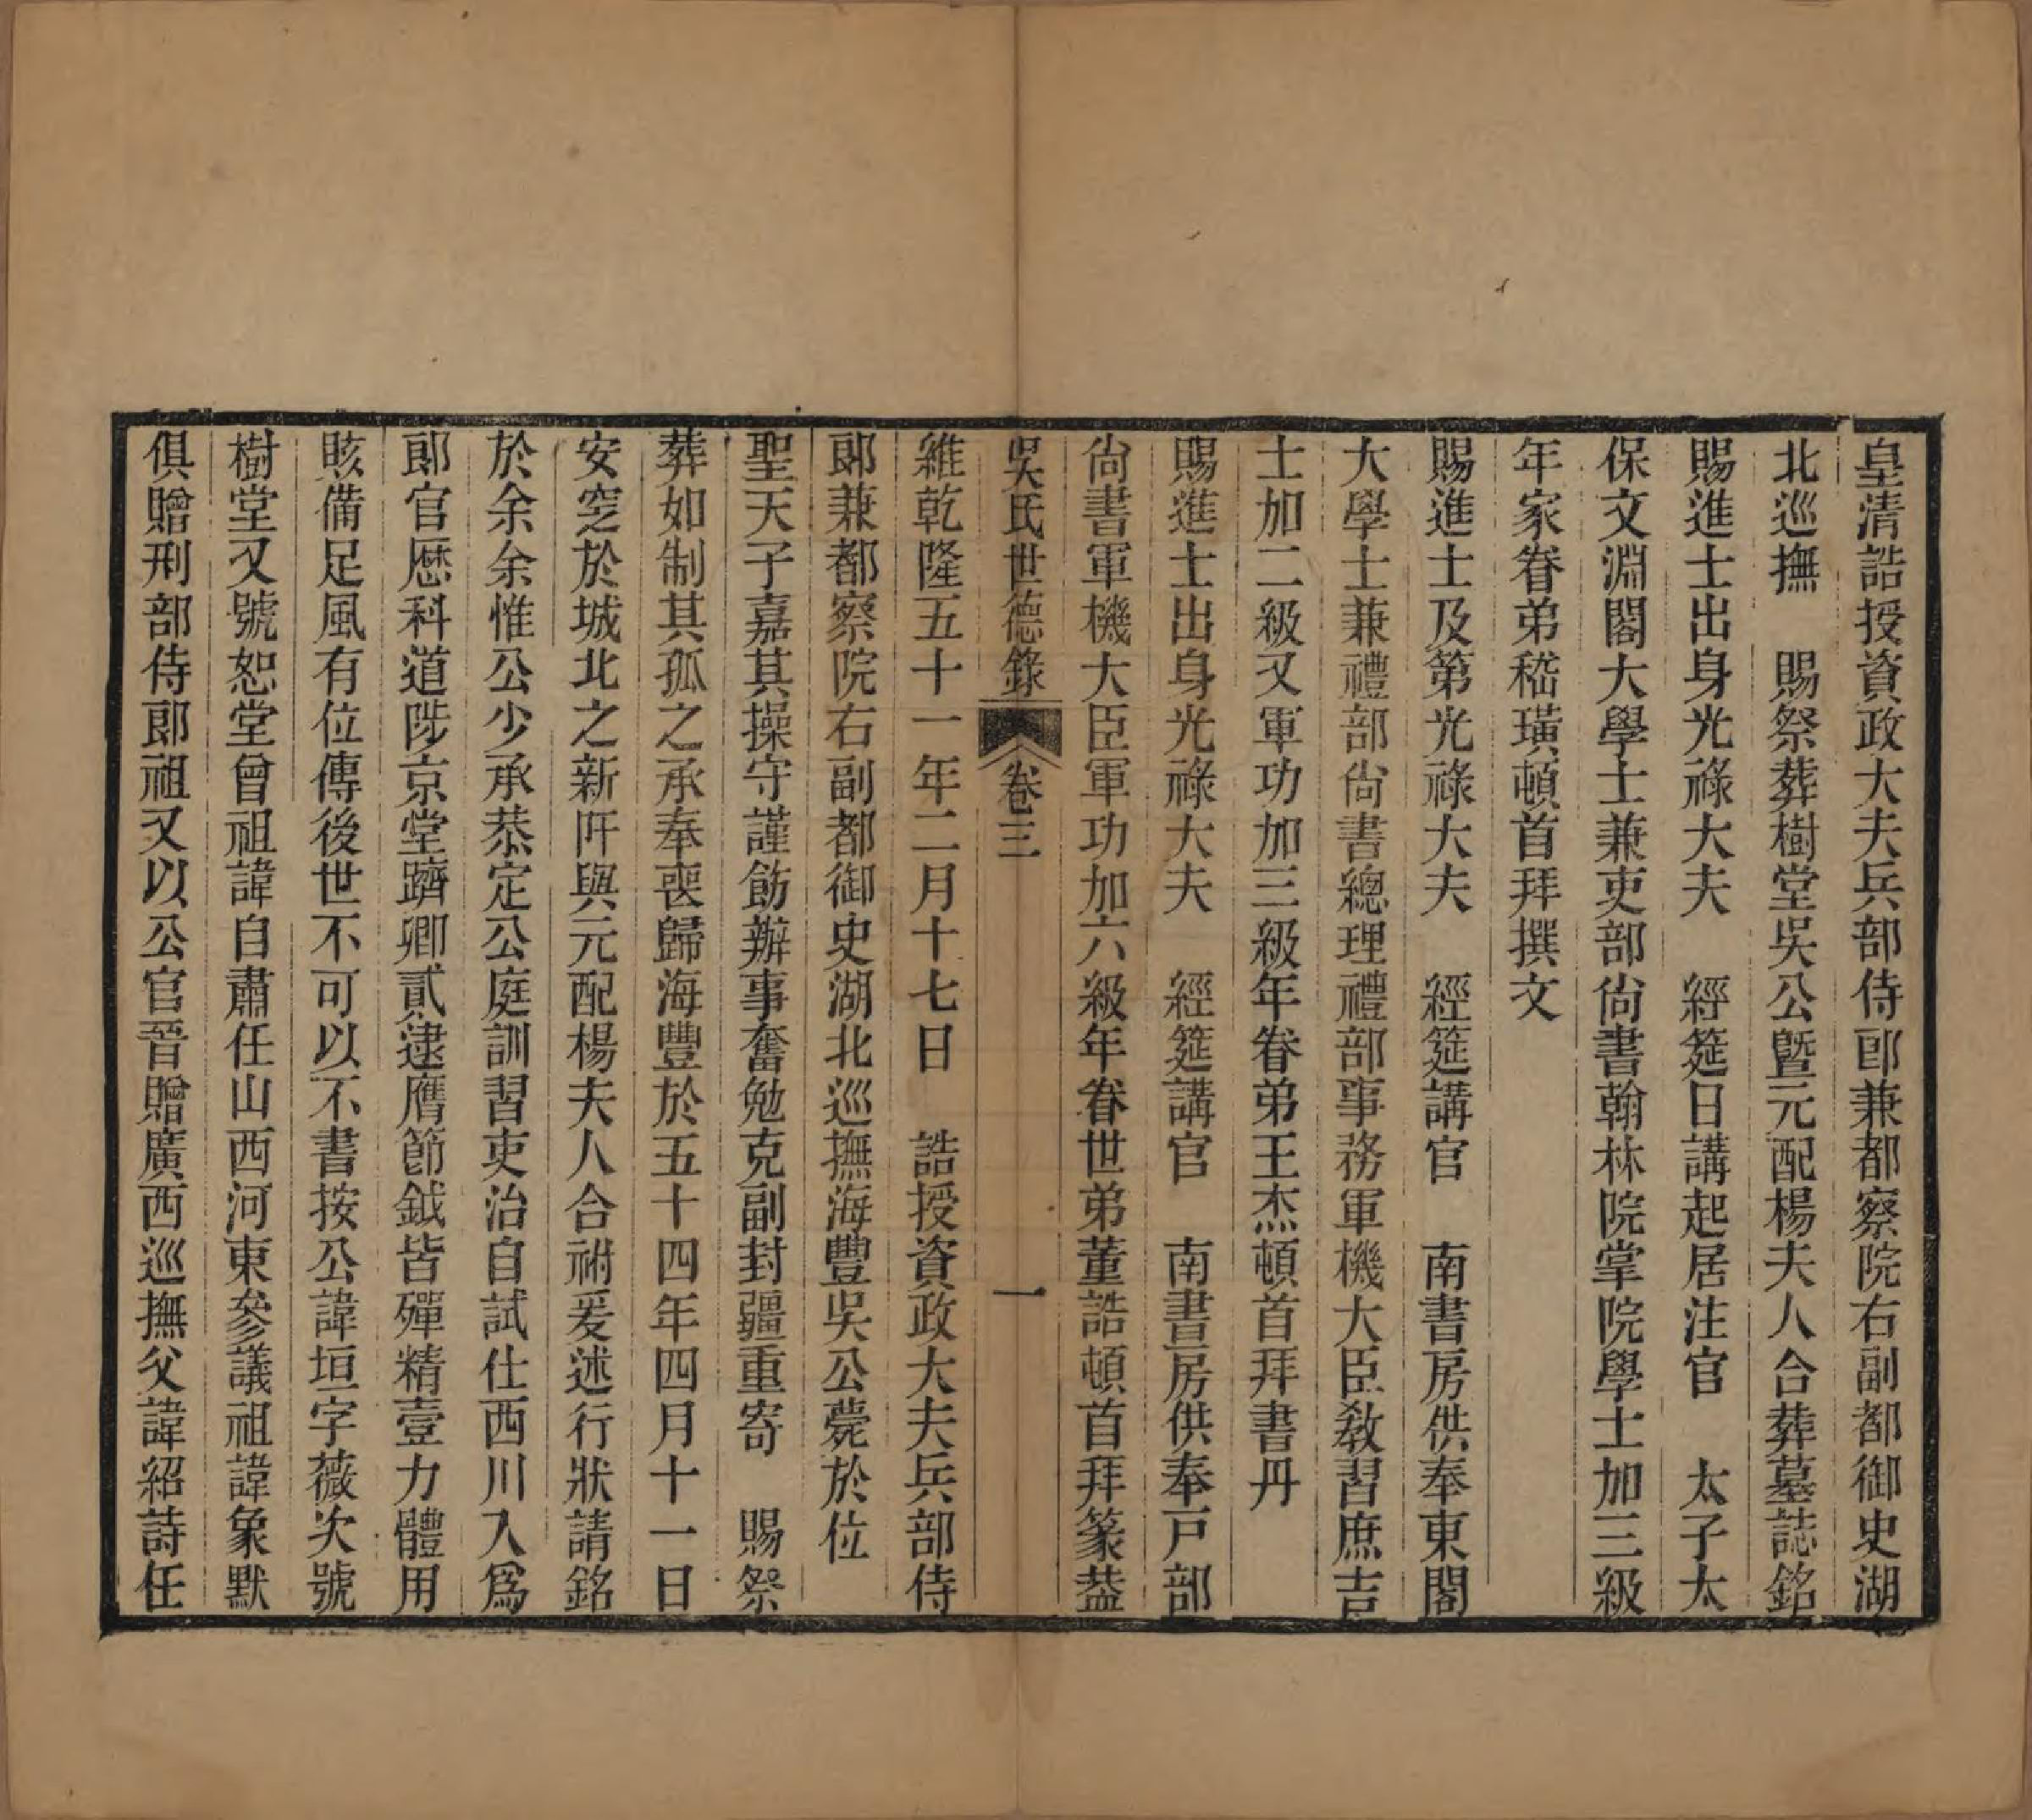 皇清誥授資政大夫兵部侍郎兼都察院右副都御史湖
北巡撫　賜祭葬樹堂吳公曁元配楊夫人合葬墓誌銘
賜進士出身光祿大夫　經筵日講起居注官　太子太
保文淵閣大學士兼吏部尙書翰林院掌院學士加三級
年家眷弟嵇璜頓首拜撰文
賜進士及第光祿大夫　經筵講官　南書房供奉東閣
大學士兼禮部尙書總理禮部事務軍機大臣敎習庶吉
士加二級又軍功加三級年眷弟王杰頓首拜書丹
賜進士出身光祿大夫　經筵講官　南書房供奉戸部
尙書軍機大臣軍功加六級年眷世弟董誥頓首拜篆葢
吳氏世德錄　卷三　一
維乾隆五十一年二月十七日　誥授資政大夫兵部侍
郎兼都察院右副都御史湖北巡撫海豐吳公薨於位
聖天子嘉其操守謹飭辦事奮勉克副封疆重寄　賜祭
葬如制其孤之承奉喪歸海豐於五十四年四月十一日
安窆於城北之新阡與元配楊夫人合祔爰述行狀請銘
於余余惟公少承恭定公庭訓習吏治自試仕西川入爲
郎官歷科道陟京堂躋卿貳逮膺節鉞皆殫精壹力體用
賅備足風有位傳後世不可以不書按公諱垣字薇次號
樹堂又號恕堂曾祖諱自肅任山西河東參議祖諱象默
俱贈刑部侍郎祖又以公官晉贈廣西巡撫父諱紹詩任